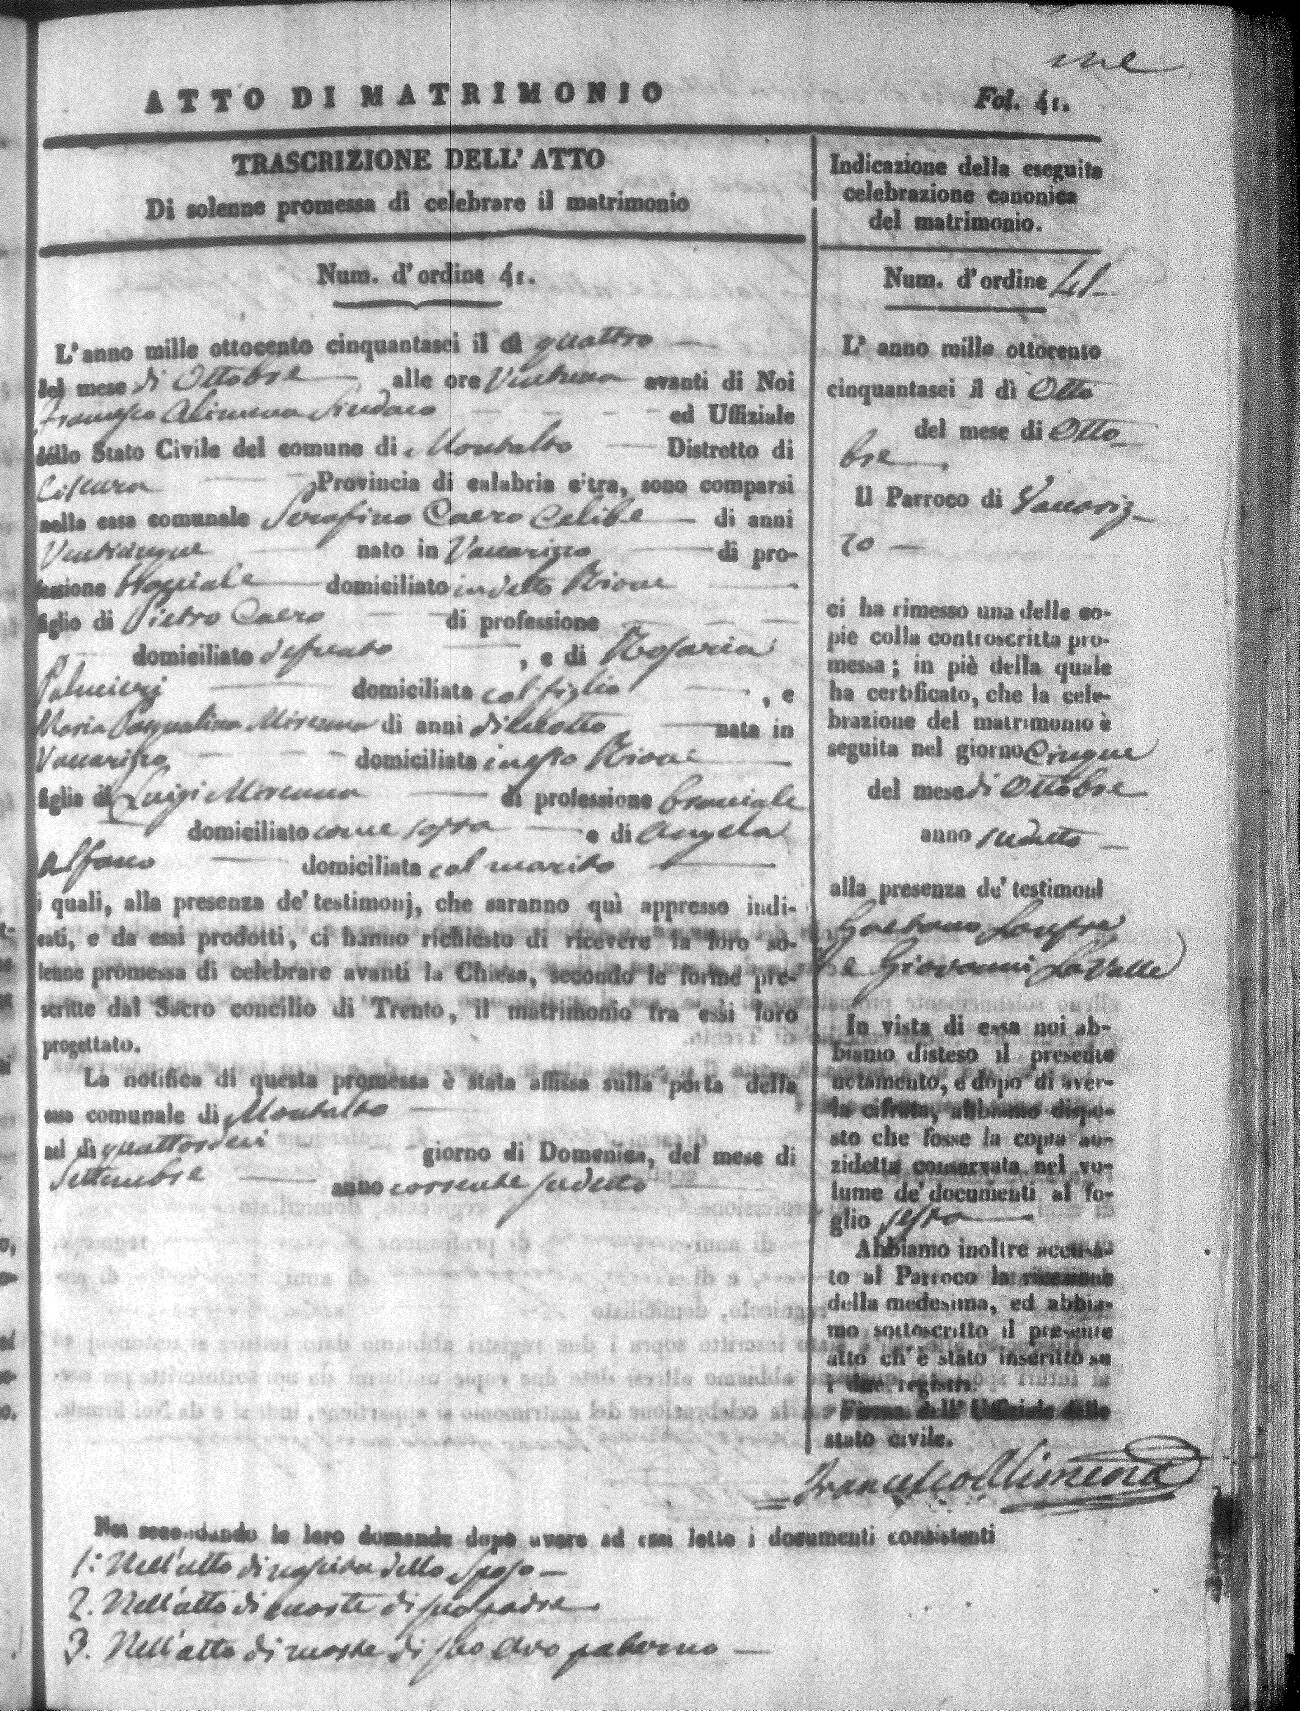 me
ATTO DI MATRIMONIO
Fol. 41.
TRASCRIZIONE DELL' ATTO
Di solenne promessa di celebrare il matrimonio
Num. d' ordine 41.
L' anno mille ottocento cinquantasei il dì quattro
del mese di Ottobre alle ore Ventuna avanti di Noi
Francesco Alimena Sindaco ed Uffiziale
dello Stato Civile del comune di Montalto Distretto di
Cosenza Provincia di calabria citra, sono comparsi
nella casa comunale Serafino Caero Celibe di anni
Venticinque nato in Vaccarizzo di pro-
fessione Bracciale domiciliato in detto Rione
figlio di Pietro Caero di professione
domiciliato defunto , e di Rosaria
Palmieri domiciliata col figlio , e
Maria Pasqualina Morenna di anni diciotto nata in
Vaccarizzo domiciliata in esso Rione
figlia di Luigi Morenna di professione bracciale
domiciliato come sopra e di Angela
Alfano domiciliata col marito
i quali, alla presenza de' testimonj, che saranno quì appresso indi-
cati, e da essi prodotti, ci hanno richiesto di ricevere la loro so-
lenne promessa di celebrare avanti la Chiesa, secondo le forme pre-
scritte dal Sacro concilio di Trento, il matrimonio tra essi loro
progettato.
La notifica di questa promessa è stata affissa sulla porta della
casa comunale di Montalto
nel dì quattordeci giorno di Domenica, del mese di
Settembre anno corrente suddetto
Noi secondando le loro domande dopo avere ad essi letto i documenti consistenti
1.: Nell'atto di nascita dello Sposo
2. Nell'atto di morte di suo padre
3. Nell'atto di morte di suo avo paterno
Indicazione della eseguita
celebrazione canonica
del matrimonio.
Num. d' ordine 41
L' anno mille ottocento
cinquantasei il dì Otto
del mese di Otto
bre
Il Parroco di Vaccariz
zo
ci ha rimesso una delle co-
pie colla controscritta pro-
messa; in piè della quale
ha certificato, che la cele-
brazione del matrimonio è
seguita nel giorno Cinque
del mese di Ottobre
anno sudetto
alla presenza de' testimoni
Gaetano
e Giovanni La Valle
In vista di essa noi ab-
biamo disteso il presente
notamento, e dopo di aver-
la cifrata, abbiamo dispo-
sto che fosse la copia an-
zidetta conservata nel vo-
lume de' documenti al fo-
glio sesto
Abbiamo inoltre accusa-
to al Parroco la ricezione
della medesima, ed abbia-
mo sottoscritto il presente
atto ch' è stato inscritto su
i due registri.
Firma dell' Uffiziale dello
stato civile.
Francesco Alimena